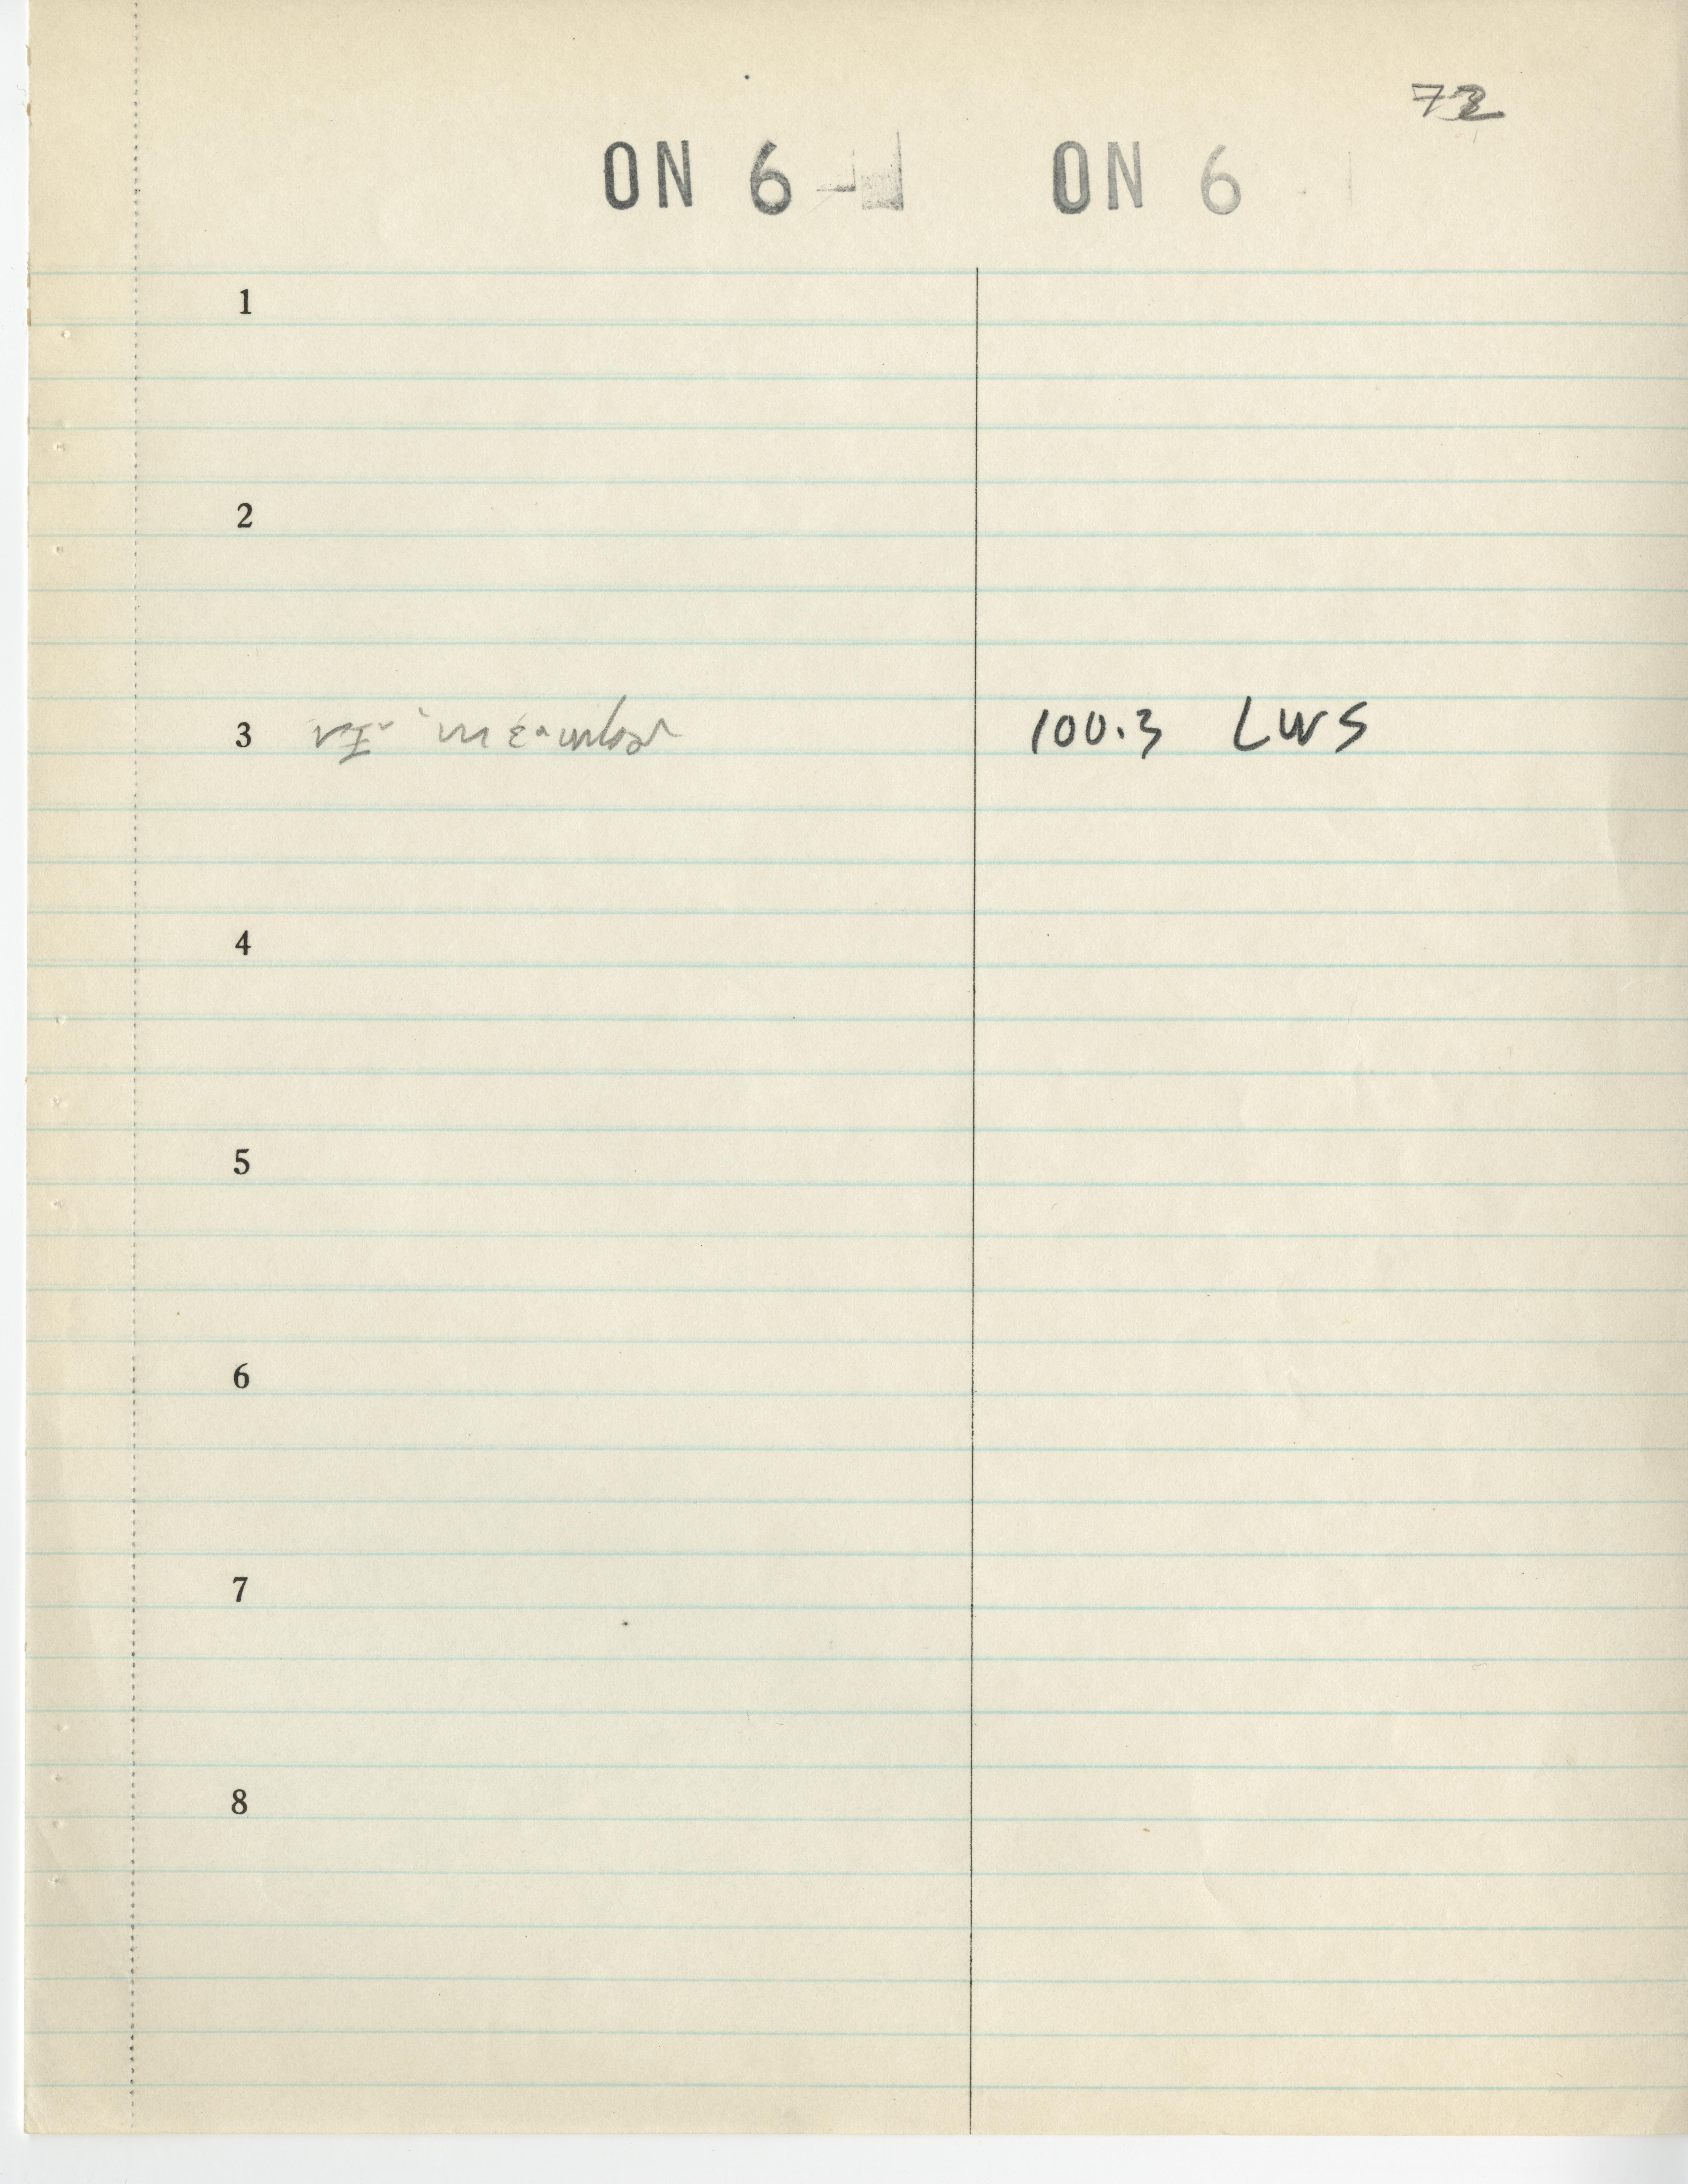 72
ON 6 ON 6
1
2
3 100.3 LWS
4
5
6
7
8